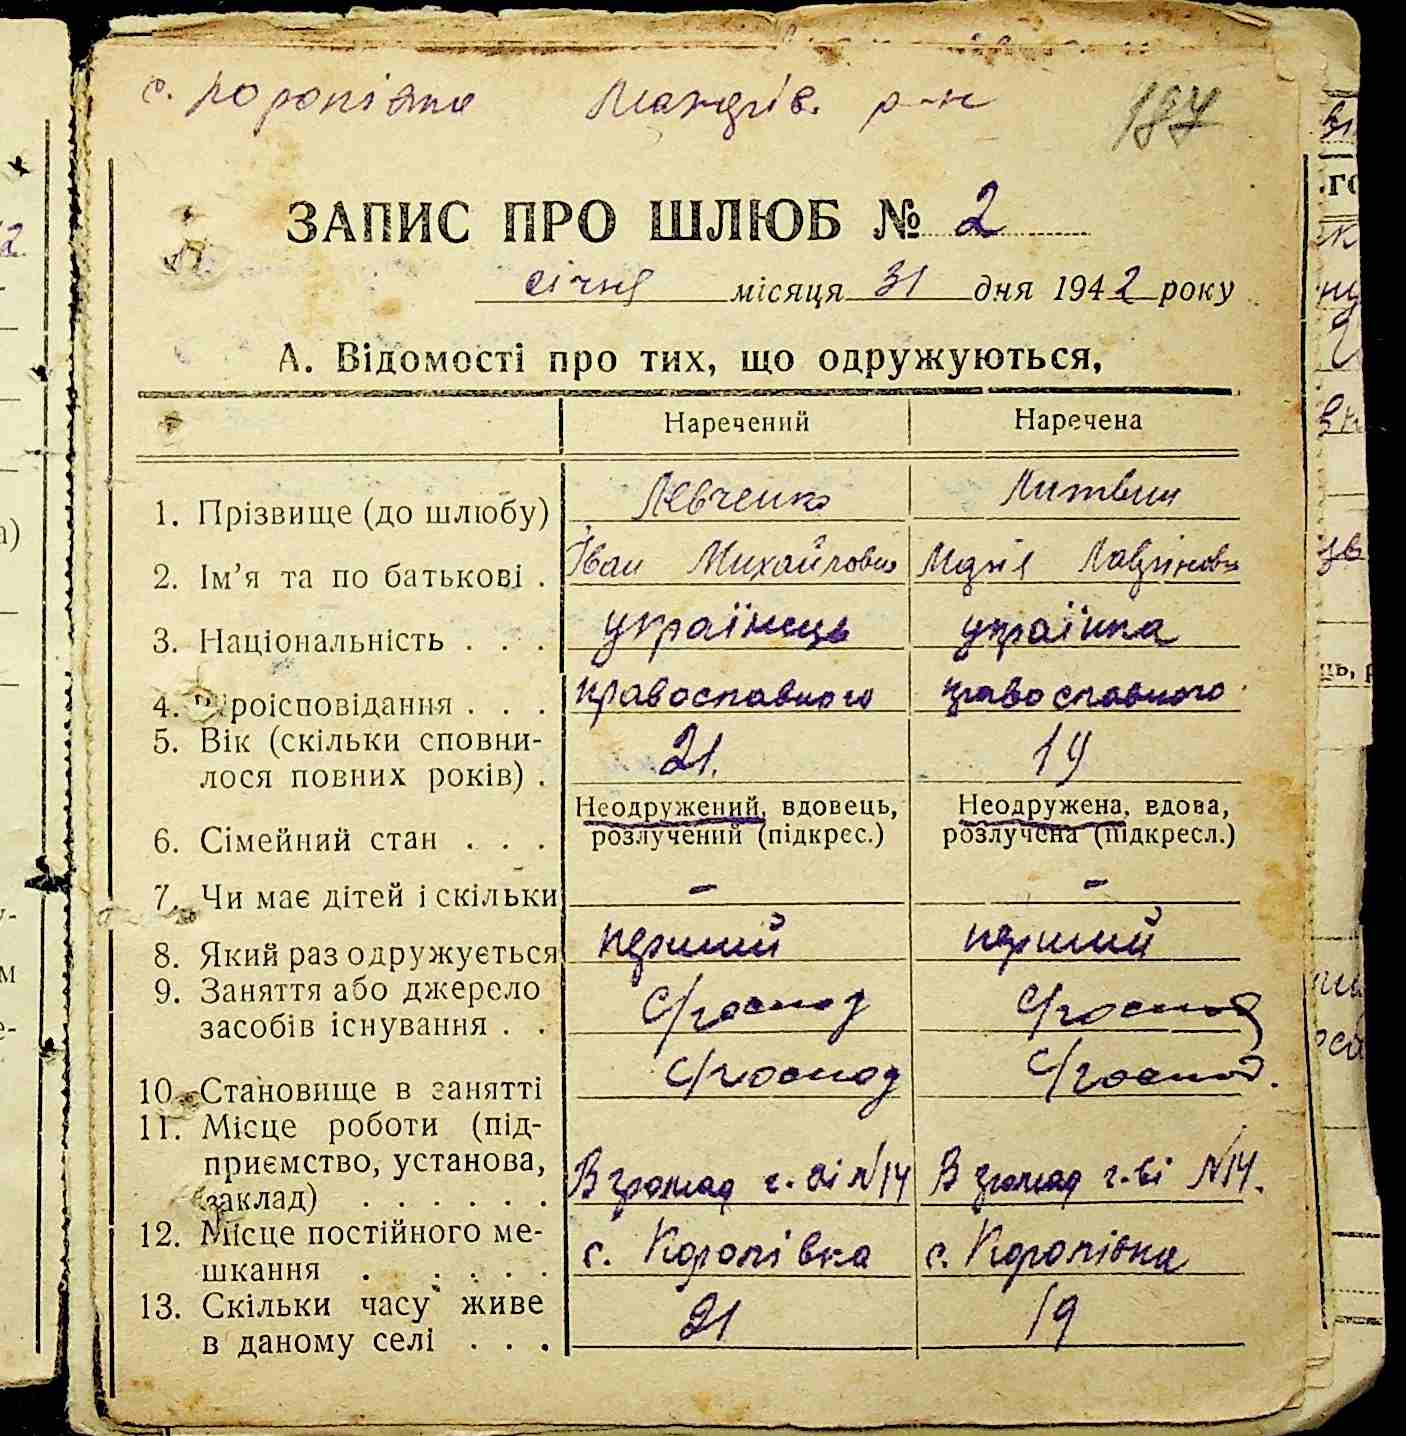 с. Коропівка Талалаїв. р-н
187
ЗАПИС ПРО ШЛЮБ № 2
січня місяця 31 дня 1942 року
А. Відомості про тих, що одружуються,
Наречений Наречена
1. Прізвище (до шлюбу) Левченко Литвин
2. Ім’я та по батькові . Іван Михайлович Марія
3. Національність . . . українець українка
4. Віроісповідання . . . православного православного
5. Вік (скільки сповни-
лося повних років) . 21. 19
Неодружений, вдовець, Неодружена, вдова,
6. Сімейний стан . . . розлучений (підкрес.) розлучена (підкресл.)
7. Чи має дітей і скільки - -
8. Який раз одружується перший перший
9. Заняття або джерело
засобів існування . . С/господ С/господ
10. Становище в занятті С/господ С/господ.
11. Місце роботи (під-
приємство, установа,
заклад) . . . . . . В громад г-ві №14 В громад г-ві №14.
12. Місце постійного ме-
шкання . . . . . с. Коропівка с. Коропівка
13. Скільки часу живе
в даному селі . . . 21 19